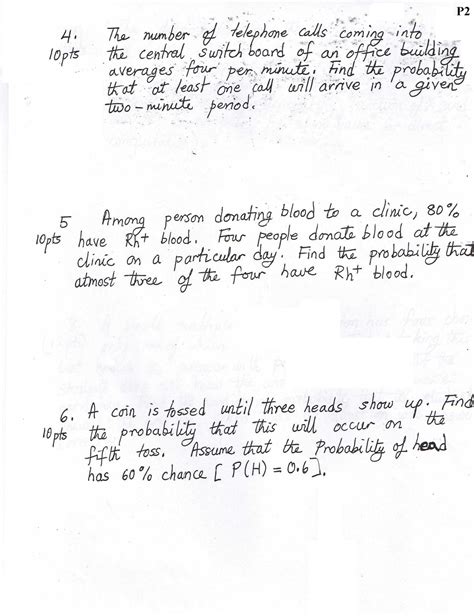 P2
4. The number of telephone calls coming into
10pts the central switchboard of an office building
averages four per minute. Find the probability
that at least one call will arrive in a given
two-minute period.
5 Among person donating blood to a clinic, 80%
10pts have Rh+ blood. Four people donate blood at the
clinic on a particular day. Find the probability that
atmost three of the four have Rh+ blood.
6. A coin is tossed until three heads show up. Find
10pts the probability that this will occur on the
fifth toss. Assume that the Probability of head
has 60% chance [P(H) = 0.6].